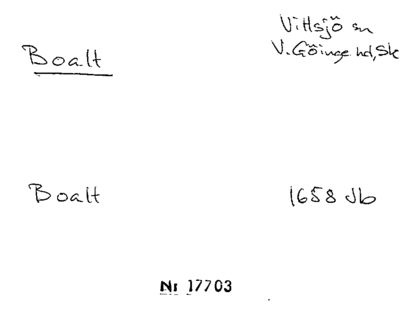 Boalt
Vittsjö sn
V. Göinge hd, Sk
Boalt
1658 Jb
Nr 17703